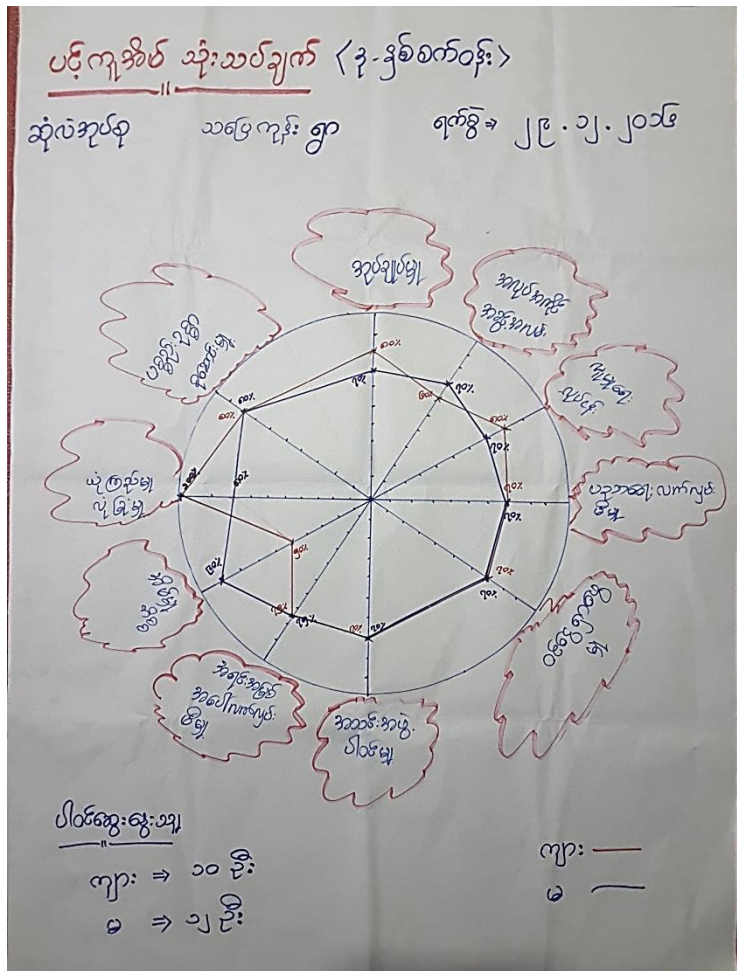 ပင့်ကူအိမ် သုံးသပ်ချက် <ဒု-နှစ်စက်ဝန်း>
ဆုံလဲအုပ်စု သပြေကုန်း ရွာ ရက်စွဲ ⇒ ၂၉.၁၂.၂၀၁၆
အုပ်ချုပ်မှု
အလုပ်အကိုင်
အခွင့်အလမ်း
လုပ်ငန်း
ပညာရေး လက်လှမ်း
မီမှု
ဝင်ငွေ
မှု
အသင်းအဖွဲ့
ပါဝင်မှု
အရင်းအမြစ်
အပေါ်လက်လှမ်း
မီမှု
ယုံကြည်မှု
လုံခြုံမှု
ပစ္စည်းဥစ္စာ
ပိုင်ဆိုင်မှု
၈၀%
၇၀%
၆၀%
၇၀%
၈၀%
၇၀%
၇၀%
၇၀%
၇၀%
၇၀%
၇၀%
၇၀%
၇၅%
၇၅%
၅၀%
၉၀%
၁၀၀%
၇၀%
၈၀%
၈၀%
ပါဝင်ဆွေးနွေးသူ
ကျား ⇒ ၁၀ ဦး
မ ⇒ ၁၂ ဦး
ကျား
မ